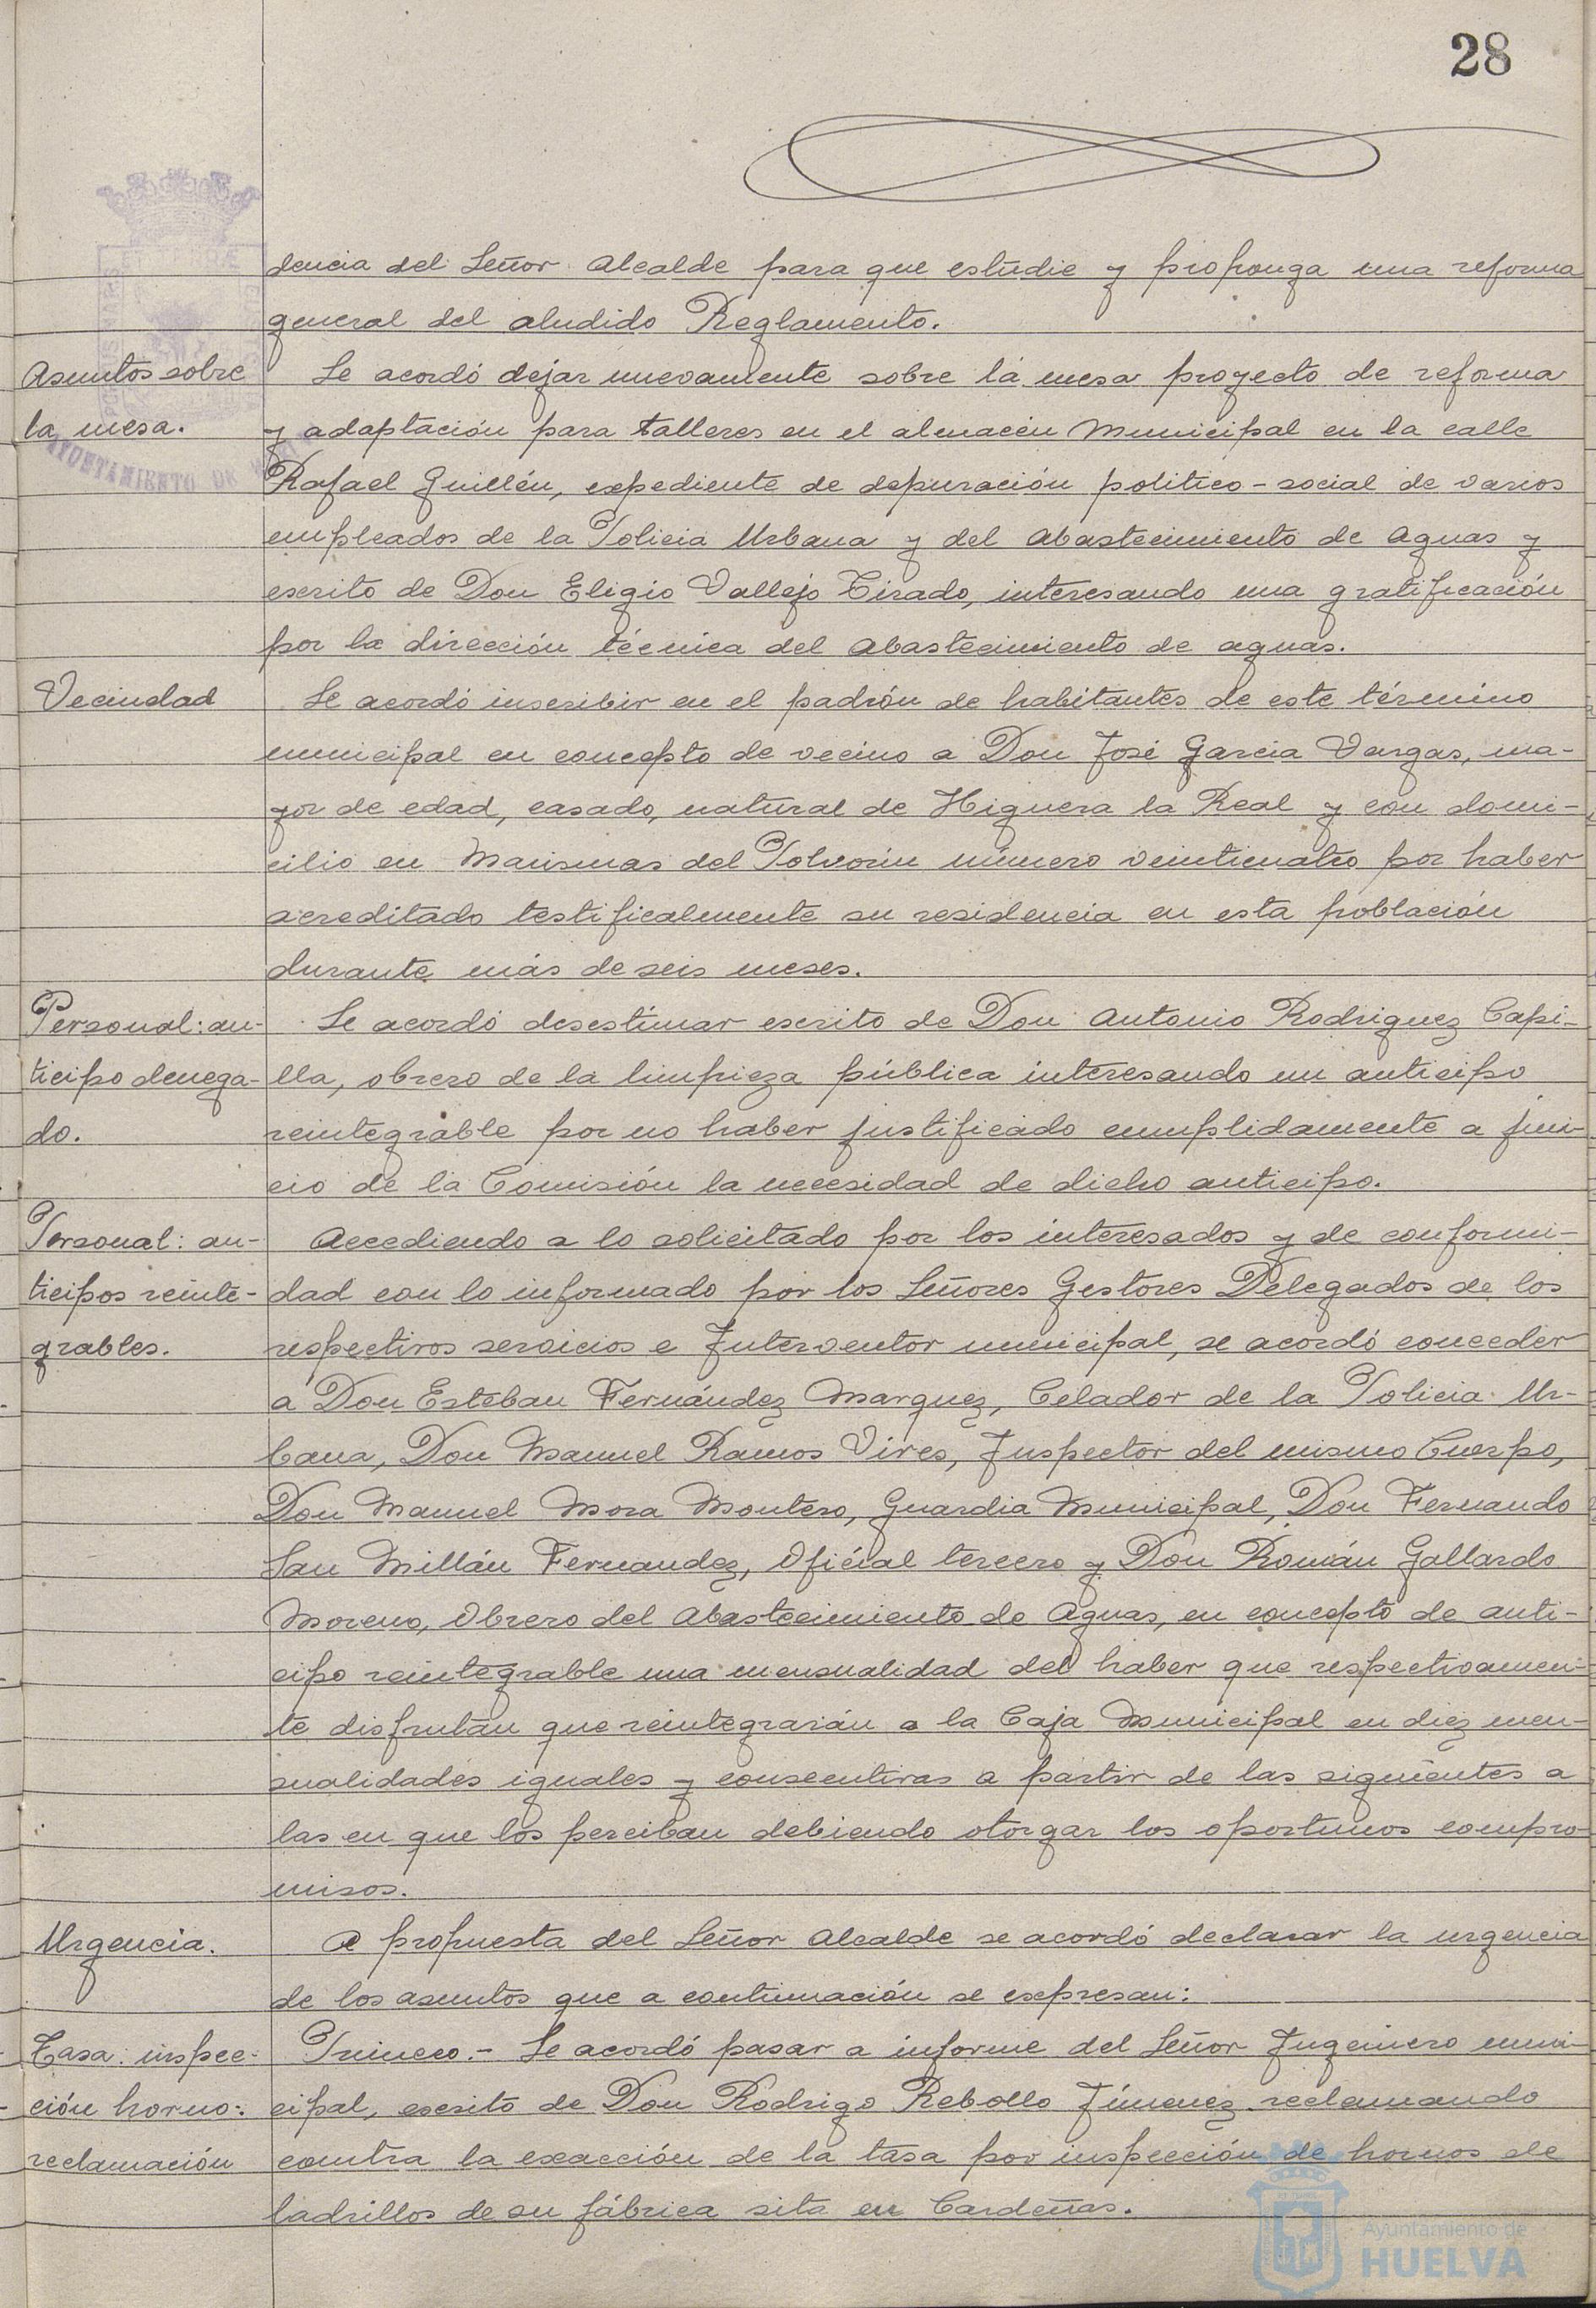 28
dencia del Señor Alcalde para que estudie y proponga una reforma
general del aludido Reglamento.
Asuntos sobre
la mesa.
Se acordó dejar nuevamente sobre la mesa proyecto de reforma
y adaptación para talleres en el almacén Municipal en la calle
Rafael Guillén, expediente de depuración politico-social de varios
empleados de la Policia Urbana y del Abastecimiento de Aguas y
escrito de Don Eligio Vallejo Tirado, interesando una gratificación
por la dirección técnica del Abastecimiento de aguas.
Vecindad
Se acordó inscribir en el padrón de habitantes de este término
municipal en concepto de vecino a Don José Garcia Vargas, ma-
yor de edad, casado, natural de Higuera la Real y con domi-
cilio en Marismas del Polvorín número veinticuatro por haber
acreditado testificalmente su residencia en esta población
durante más de seis meses.
Personal: an-
ticipo denega-
do.
Se acordó desestimar escrito de Don Antonio Rodriguez Capi-
lla, obrero de la limpieza pública interesando un anticipo
reintegrable por no haber justificado cumplidamente a jui-
cio de la Comisión la necesidad de dicho anticipo.
Personal: an-
ticipos reinte-
grables.
Accediendo a lo solicitado por los interesados y de conformi-
dad con lo informado por los Señores Gestores Delegados de los
respectivos servicios e Interventor municipal, se acordó conceder
a Don Esteban Fernández Marquez, Celador de la Policia Ur-
bana, Don Manuel Ramos Vives, Inspector del mismo Cuerpo,
Don Manuel Mora Montero, Guardia Municipal, Don Fernando
San Millán Fernandez, Oficial tercero y Don Román Gallardo
Moreno, Obrero del Abastecimiento de Aguas, en concepto de anti-
cipo reintegrable una mensualidad del haber que respectivamen-
te disfrutan que reintegrarán a la Caja Municipal en diez men-
sualidades iguales y consecutivas a partir de las siguientes a
las en que los perciban debiendo otorgar los oportunos compro-
misos.
Urgencia.
A propuesta del Señor Alcalde se acordó declarar la urgencia
de los asuntos que a continuación se expresan:
Tasa: inspec-
ción horno:
reclamación
Primero.- Se acordó pasar a informe del Señor Ingeniero muni-
cipal, escrito de Don Rodrigo Rebollo Jímenez reclamando
contra la exacción de la tasa por inspección de hornos de
ladrillos de su fábrica sita en Cardeñas.
AYUNTAMIENTO DE
Ayuntamiento de
HUELVA